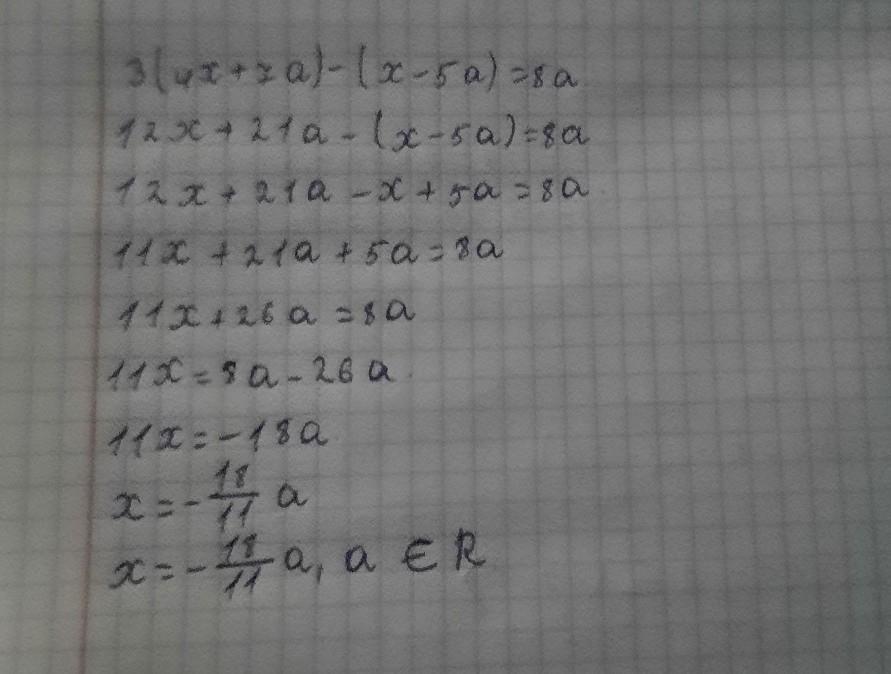 3(4x+7a)-(x-5a)=8a
12x+21a-(x-5a)=8a
12x+21a-x+5a=8a
11x+21a+5a=8a
11x+26a=8a
11x=8a-26a
11x=-18a
x=-18/11 a
x=-18/11 a, a ∈ R